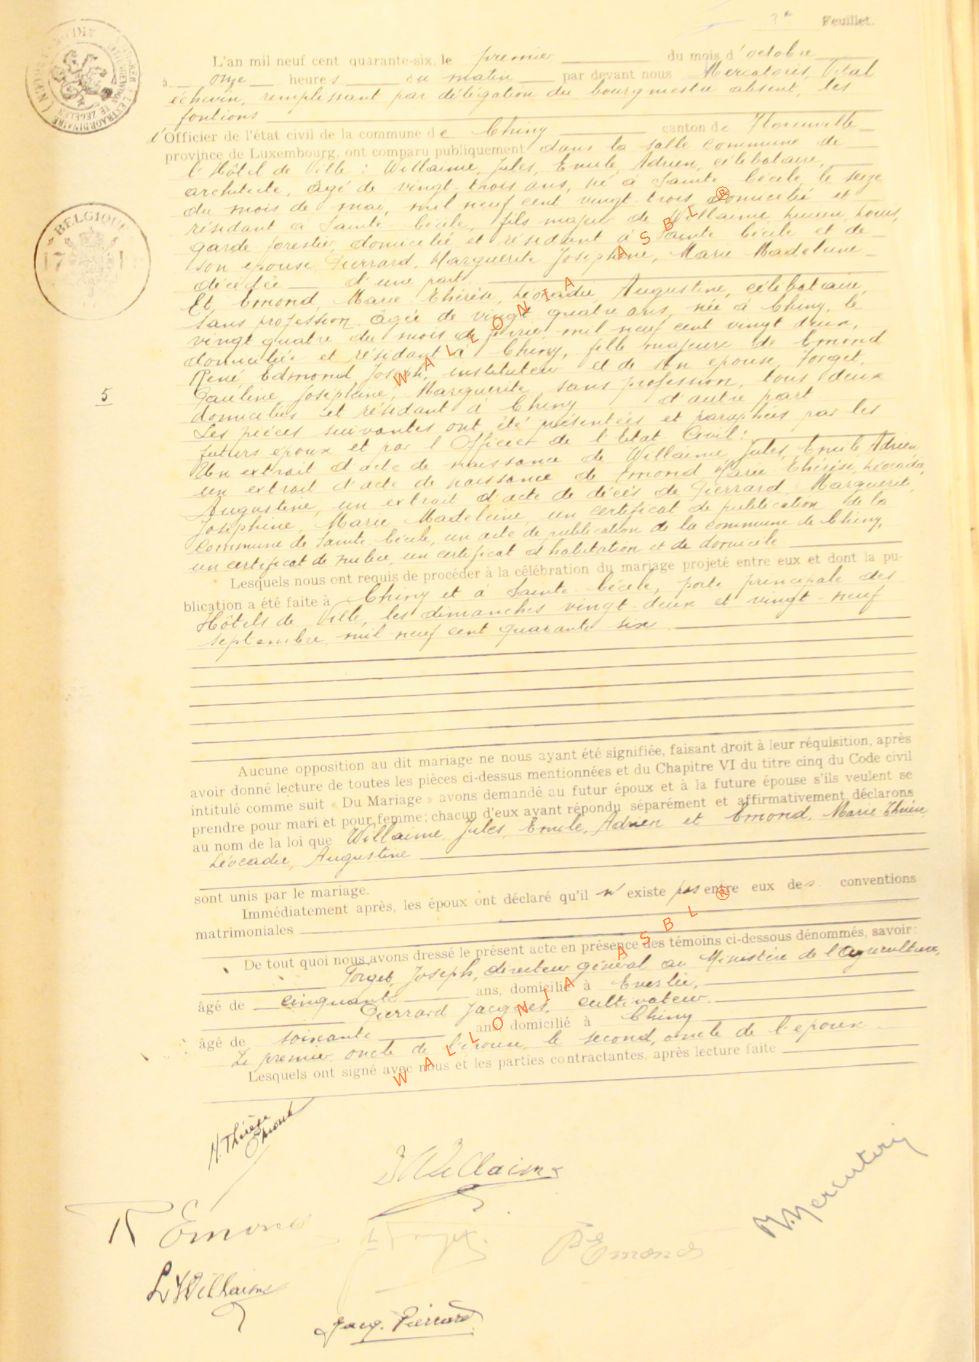 3e Feuillet.
L'an mil neuf cent quarante-six, le premier du mois d'octobre
à onze heures du matin par devant nous Mercatoris, Vital
échevin, remplissant par délégation du bourgmestre absent, les
fontions
l'Officier de l'état civil de la commune de Chiny canton de Florenville
province de Luxembourg, ont comparu publiquement dans la salle commune de
l'Hôtel de Ville : Willaime, Jules, Emile, Adrien, célibataire,
architecte, âgé de vingt trois ans, né à Sainte Cécile le seize
du mois de mai, mil neuf cent vingt trois, domicilié et
résidant à Sainte Cécile, fils majeur de Willaime Lucien, Louis,
garde forestier, domicilié et résidant à Sainte Cécile et de
son épouse Pierrard, Marguerite Joséphine, Marie Madeleine
décédée d'une part
Et Emond Marie Thérèse, Léocadie Augustine, célibataire,
sans profession, âgée de vingt quatre ans, née à Chiny, le
vingt quatre du mois de février mil neuf cent vingt deux,
domiciliée et résidant à Chiny, fille majeure de Emond
René Edmond Joseph, instituteur et de son épouse, Forget,
Pauline Joséphine, Marguerite, sans profession, tous deux
domiciliés et résidant à Chiny d'autre part
5
Les pièces suivantes ont été présentées et paraphées par les
futurs époux et par l'Officier de l'Etat Civil :
Un extrait d'acte de naissance de Willaime Jules, Emile, Adrien,
un extrait d'acte de naissance de Emond Marie Thérèse, Léocadie,
Augustine, un extrait d'acte de décès de Pierrard, Marguerite,
Joséphine, Marie, Madeleine, un certificat de publication de la
commune de Sainte Cécile, un acte de publication de la commune de Chiny,
un certificat de milice, un certificat d'habitation et de domicile
Lesquels nous ont requis de procéder à la célébration du mariage projeté entre eux et dont la pu-
blication a été faite à Chiny et à Sainte Cécile, porte principale des
Hôtels de Ville, les dimanches vingt-deux et vingt-neuf
septembre mil neuf cent quarante six
Aucune opposition au dit mariage ne nous ayant été signifiée, faisant droit à leur réquisition, après
avoir donné lecture de toutes les pièces ci-dessus mentionnées et du Chapitre VI du titre cinq du Code civil
intitulé comme suit « Du Mariage » avons demandé au futur époux et à la future épouse s'ils veulent se
prendre pour mari et pour femme ; chacun d'eux ayant répondu séparément et affirmativement déclarons
au nom de la loi que Willaime, Jules, Emile, Adrien et Emond, Marie Thérèse
Léocadie, Augustine
sont unis par le mariage.
Immédiatement après, les époux ont déclaré qu'il n'existe pas entre eux des conventions
matrimoniales
De tout quoi nous avons dressé le présent acte en présence des témoins ci-dessous dénommés, savoir :
Forget, Joseph, directeur général au Ministère de l'agriculture,
âgé de cinquante ans, domicilié à
Pierrard Jacques, cultivateur
âgé de soixante ans domicilié à Chiny
Le premier oncle de l'épouse, le second, oncle de l'époux
Lesquels ont signé avec nous et les parties contractantes, après lecture faite
M. Thérèse
Emond
J Willaime
R Emond
P Emond
L Willaime
Jacq. Pierrard
BELGIQUE
WALLONIA ASBL ®
WALLONIA ASBL ®